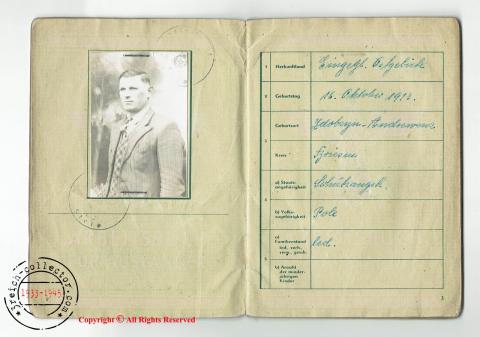 1 Herkunftland Eingegl. Ostgebiete
2 Geburtstag 16. Oktober 1913.
Geburtsort
3
Kreis
4
a) Staats-
angehörigkeit Schutzangeh.
b) Volks-
zugehörigkeit Pole
5
a)
Familienstand led.
led., verh.,
verw., gesch.
b) Anzahl
der minder-
jährigen
Kinder
3
3reich-collector.com
1933-1945
Copyright © All Rights Reserved